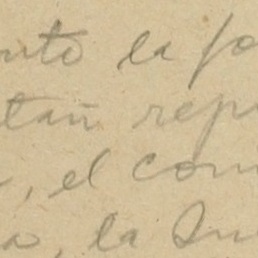 nto la fo
tan rep
, el com
a, la Qu